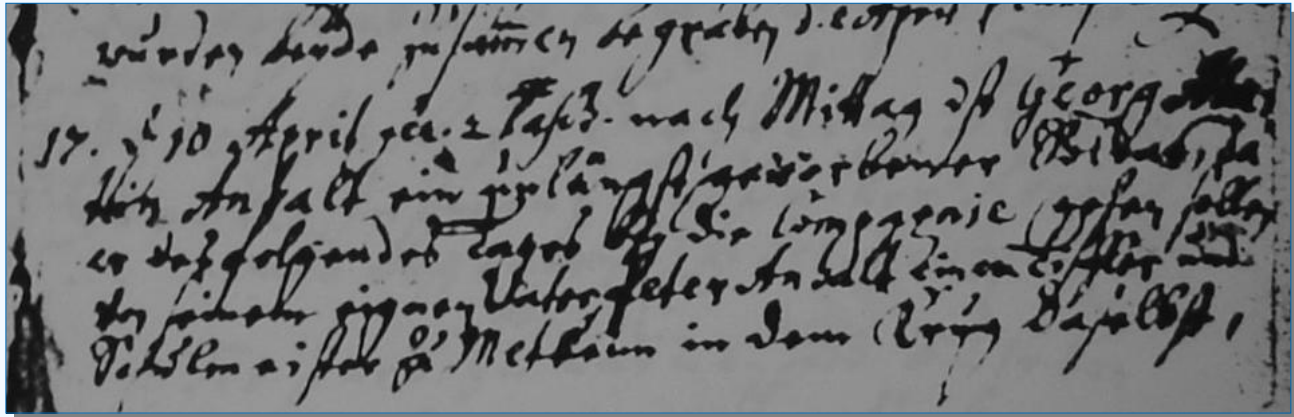 wurden beyde zusammen begraben d. April
17. d 10 April nach Mittag ist Georg
Anhalt ein unlängst geworbener Soldat, da
er des folgendes Tages die Compagnie gehen sollen
von seinem eignen Vater Peter Anhalt einem und
Schulmeister zu Metkeim in dem Krug daselbst,